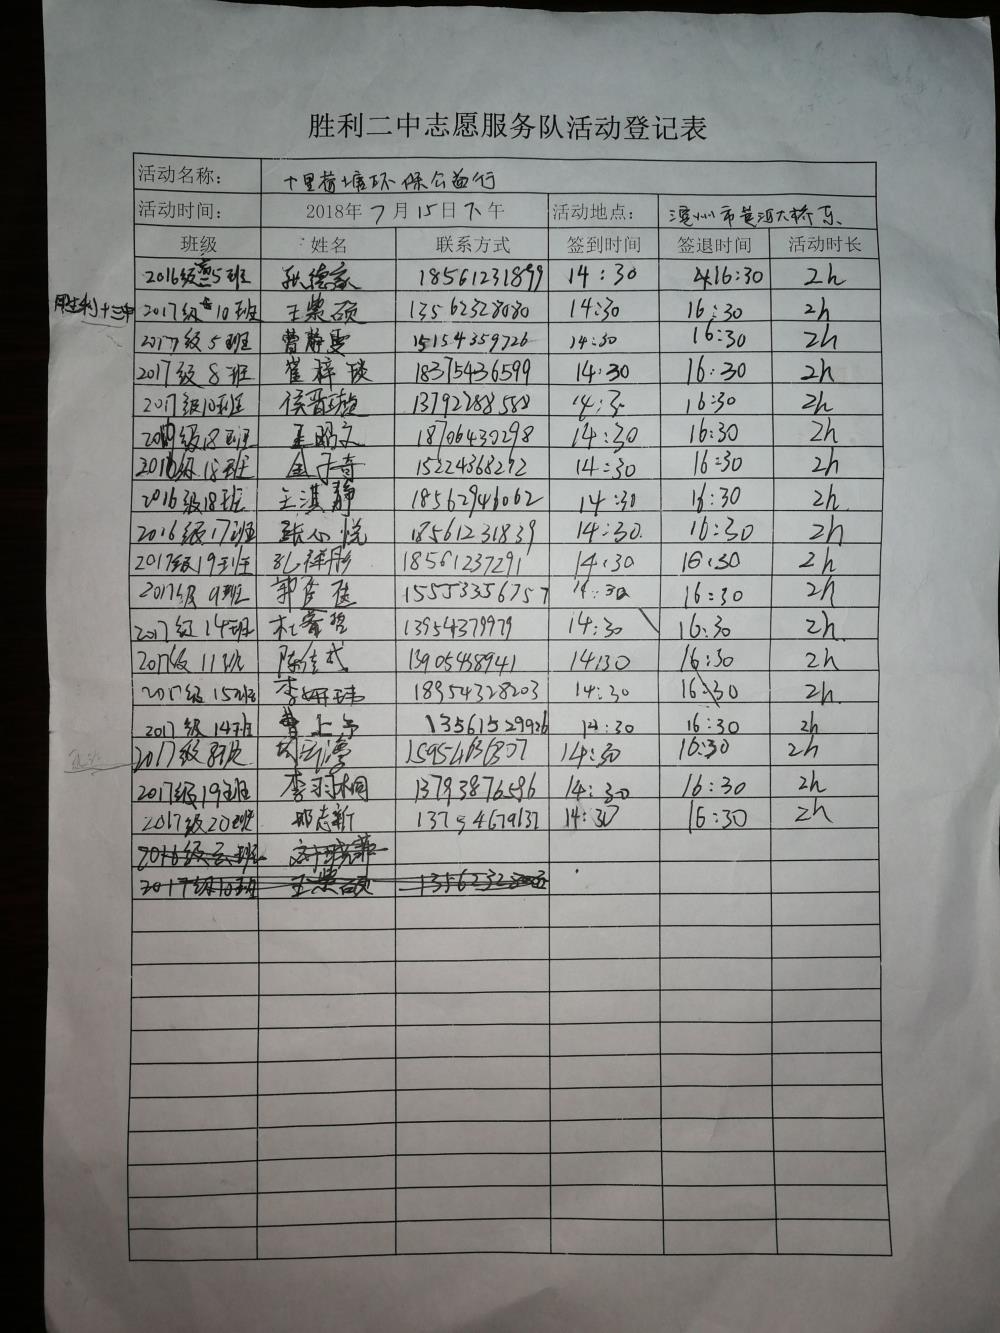 胜利二中志愿服务队活动登记表
活动名称： 十里荷塘环保公益行
活动时间： 2018年7月15日下午 活动地点： 滨州市黄河大桥东
班级 姓名 联系方式 签到时间 签退时间 活动时长
2016级 5班 耿德家 18561231899 14:30 16:30 2h
胜利十三中 2017级10班 王崇硕 13562328080 14:30 16:30 2h
2017级5班 曹静雯 15154359726 14:30 16:30 2h
2017级8班 崔梓琰 18375436599 14:30 16:30 2h
2017级10班 侯晋璇 13792288588 16:30 2h
级18班 孟昭文 18706430298 14:30 16:30 2h
级18班 子奇 15224368272 14:30 16:30 2h
2016级18班 王淇静 18562946062 14:30 16:30 2h
2016级17班 张心悦 18561231839 14:30 16:30 2h
2017级19班 孔祥彤 18561237291 14:30 16:30 2h
2017级9班 郭 15553356757 14:30 16:30 2h
2017级14班 杜 哲 13954379979 14:30 16:30 2h
2017级11班 陈佳 13905438941 14:30 16:30 2h
2017级15班 李妍玮 18954328203 14:30 16:30 2h
2017级14班 曹上 13561529926 14:30 16:30 2h
2017级8班 14:30 16:30 2h
2017级19班 李羽桐 13793876586 14:30 16:30 2h
2017级20班 邢志新 14:30 16:30 2h
2016级 班
2017级10班 王崇硕